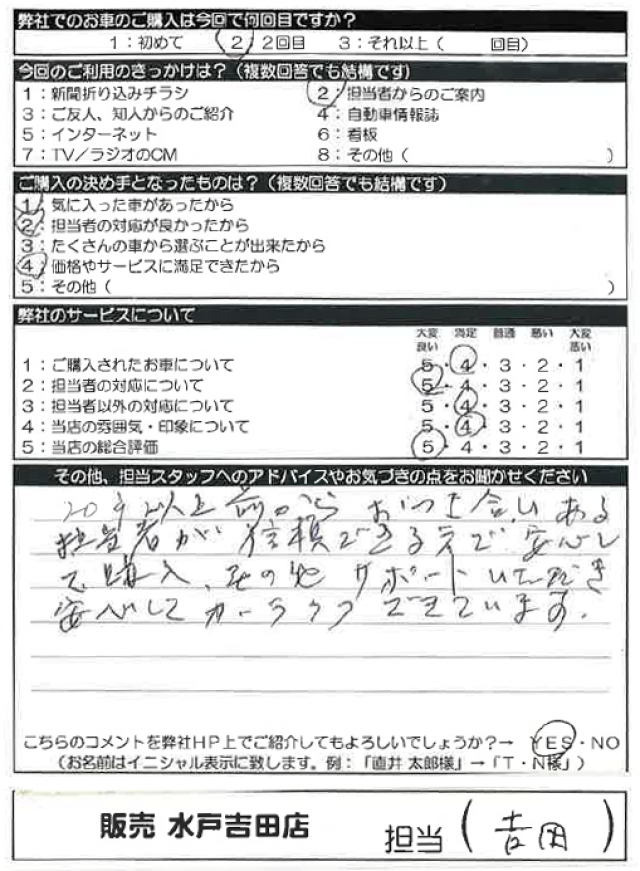 弊社でのお車のご購入は今回で何回目ですか？
1：初めて 2：2回目 3：それ以上（ 回目）
今回のご利用のきっかけは？（複数回答でも結構です）
1：新聞折り込みチラシ 2：担当者からのご案内
3：ご友人、知人からのご紹介 4：自動車情報誌
5：インターネット 6：看板
7：TV／ラジオのCM 8：その他（ ）
ご購入の決め手となったものは？（複数回答でも結構です）
1：気に入った車があったから
2：担当者の対応が良かったから
3：たくさんの車から選ぶことが出来たから
4：価格やサービスに満足できたから
5：その他（ ）
弊社のサービスについて
大変良い 満足 普通 悪い 大変悪い
1：ご購入されたお車について 5・4・3・2・1
2：担当者の対応について 5・4・3・2・1
3：担当者以外の対応について 5・4・3・2・1
4：当店の雰囲気・印象について 5・4・3・2・1
5：当店の総合評価 5・4・3・2・1
その他、担当スタッフへのアドバイスやお気づきの点をお聞かせください
20年以上前から おつき合いある
担当者が 信頼できる 安心し
て購入、その他 サポートいただき
安心して カーライフ できています.
こちらのコメントを弊社HP上でご紹介してもよろしいでしょうか？→ YES・NO
（お名前はイニシャル表示に致します。例：「直井 太郎様」→「T・N様」）
販売 水戸吉田店 担当（吉田）